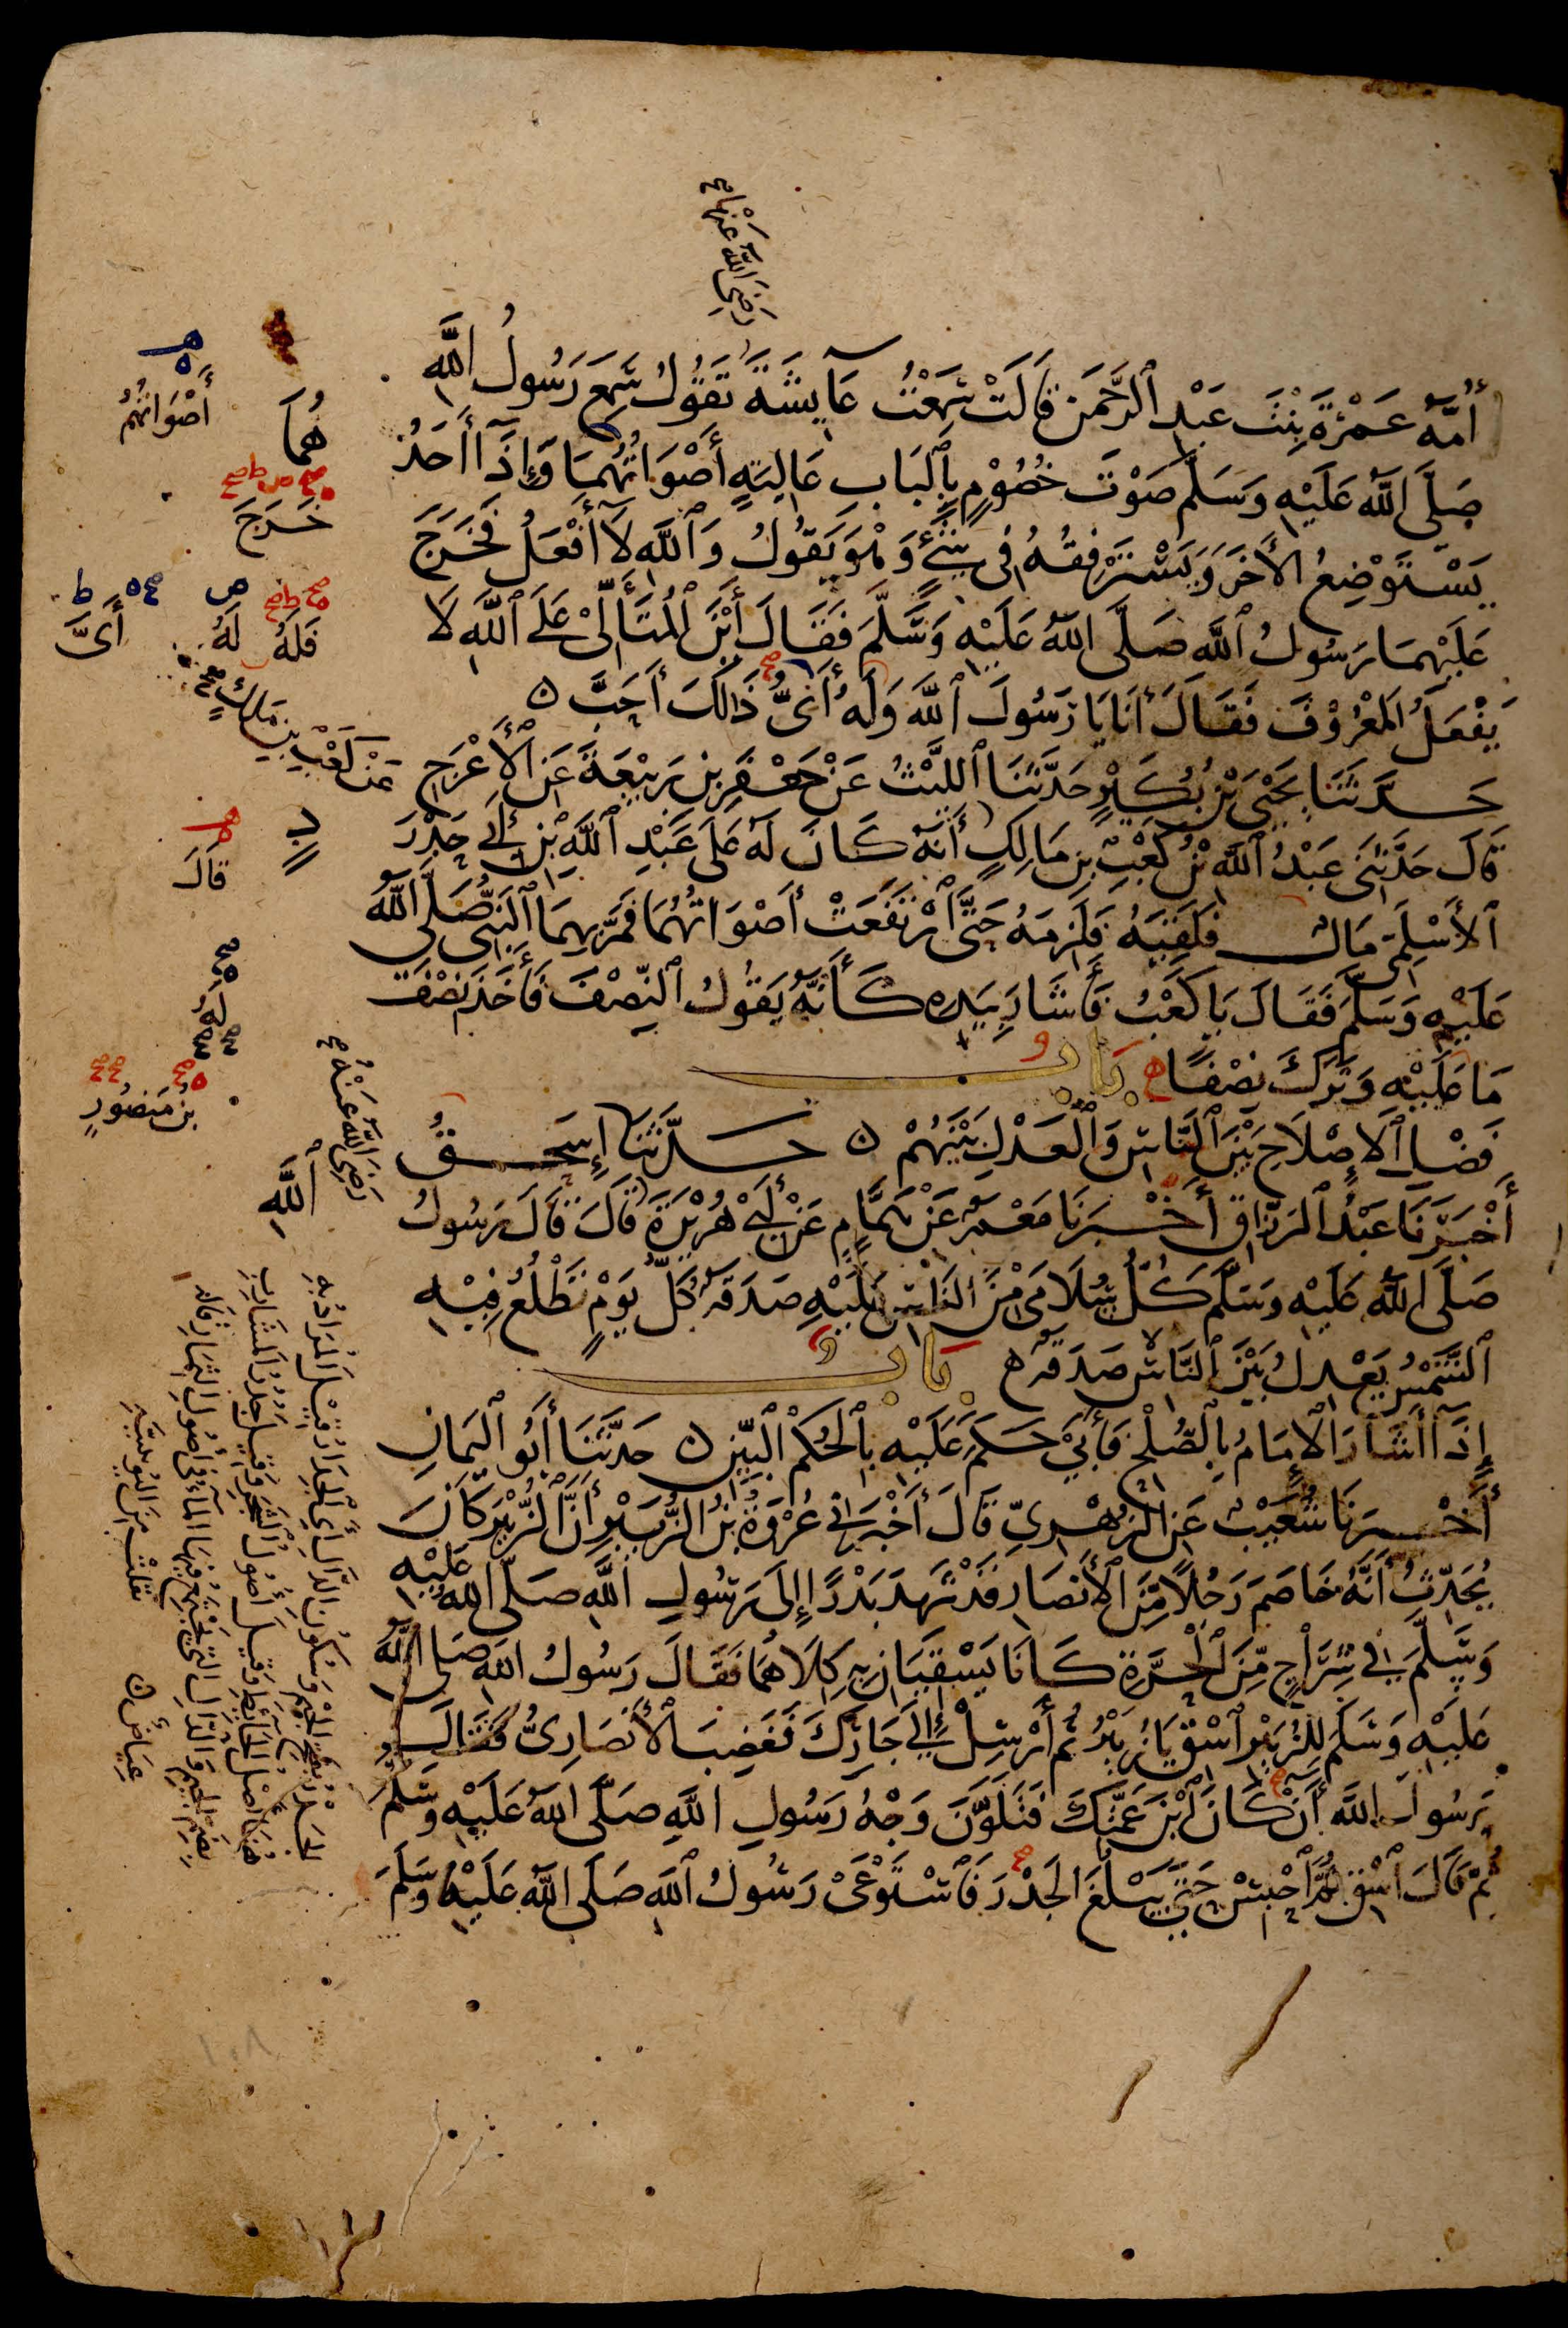 رَضِيَ اللَّهُ عَنْهَا
أُمَّهُ عَمْرَةَ بِنْتَ عَبْدِ ٱلرَّحْمَنِ قَالَتْ سَمِعْتُ عَآيِشَةَ تَقُولُ سَمِعَ رَسُولُ اللَّهِ
صَلَّى اللَّهُ عَلَيْهِ وَسَلَّمَ صَوْتَ خُصُوْمٍ بِٱلْبَابِ عَالِيَةٍ أَصْوَاتُهُمَا وَإِذَآ أَحَدُهُمَا
يَسْتَوْضِعُ الأَخَرَ وَيَسْتَرْفِقُهُ فِى شَىْءٍ وَهْوَ يَقُولُ وَٱللَّهِ لَآ أَفْعَلُ فَخَرَجَ
عَلَيْهِمَا رَسُولُ ٱللَّهِ صَلَّى اللَّهُ عَلَيْهِ وَسَلَّمَ فَقَالَ أَيْنَ ٱلْمُتَأَلِّىْ عَلَى ٱللَّهِ لَا
يَفْعَلُ الْمَعْرُوْفَ فَقَالَ أَنَا يَا رَسُولَ ٱللَّهِ وَلَهُ أَىُّ ذَالِكَ أَحَبَّ ه
حَدَّثَنَا يَحْيَى بْنُ بُكَيْرٍ حَدَّثَنَا ٱللَّيْثُ عَنْ جَعْفَرِ بْنِ رَبِيْعَةَ عَنِ ٱلْأَعْرَجِ
قَالَ حَدَّثَنِى عَبْدُ ٱللَّهِ بْنُ كَعْبِ بْنِ مَالِكٍ أَنَّهُ كَانَ لَهُ عَلَى عَبْدِ ٱللَّهِ بْنِ أَبِى حَدْرَدٍ
ٱلأَسْلَمِىِّ مَالٌ فَلَقِيَهُ فَلَزِمَهُ حَتَّى ٱرْتَفَعَتْ أَصْوَاتُهُمَا فَمَرَّ بِهِمَا ٱلنَّبِىُّ صَلَّى اللَّهُ
عَلَيْهِ وَسَلَّمَ فَقَالَ يَا كَعْبُ فَأَشَارَ بِيَدِهِ كَأَنَّهُ يَقُولُ ٱلنِّصْفَ فَأَخَذَ نِصْفَ
مَا عَلَيْهِ وَتَرَكَ نِصْفًا ه بَابُ
فَضْلِ ٱلْإِصْلَاحِ بَيْنَ ٱلنَّاسِ وَٱلْعَدْلِ بَيْنَهُمْ ه حَدَّثَنَا إِسْحَقُ
أَخْبَرَنَا عَبْدُ ٱلرَّزَّاقِ أَخْبَرَنَا مَعْمَرٌ عَنْ هَمَّامٍ عَنْ أَبِى هُرَيْرَةَ قَالَ قَالَ رَسُولُ اللَّهِ
صَلَّى اللَّهُ عَلَيْهِ وَسَلَّمَ كُلُّ سُلَامَى مِنَ ٱلنَّاسِ عَلَيْهِ صَدَقَةٌ كُلَّ يَوْمٍ تَطْلُعُ فِيْهِ
ٱلشَّمْسُ يَعْدِلُ بَيْنَ ٱلنَّاسِ صَدَقَةٌ ه بَابُ
إِذَآ أَشَارَ ٱلْإِمَامُ بِالصُّلْحِ فَأَبَى حَكَمَ عَلَيْهِ بِٱلْحُكْمِ ٱلْبَيِّنِ ه حَدَّثَنَا أَبُو ٱلْيَمَانِ
أَخْبَرَنَا شُعَيْبٌ عَنِ الزُّهْرِيِّ قَالَ أَخْبَرَنِى عُرْوَةُ بْنُ الزُّبَيْرِ أَنَّ ٱلزُّبَيْرَ كَانَ
يُحَدِّثُ أَنَّهُ خَاصَمَ رَجُلًا مِّنَ ٱلْأَنْصَارِ قَدْ شَهِدَ بَدْرًا إِلَى رَسُولِ اللَّهِ صَلَّى اللَّهُ عَلَيْهِ
وَسَلَّمَ فِى شِرَاجٍ مِّنَ ٱلْحَرَّةِ كَانَا يَسْقِيَانِ بِهِ كِلَاهُمَا فَقَالَ رَسُولُ اللَّهِ صَلَّى اللَّهُ
عَلَيْهِ وَسَلَّمَ لِلزُّبَيْرِ ٱسْقِ يَا زُبَيْرُ ثُمَّ أَرْسِلْ إِلَى جَارِكَ فَغَضِبَ ٱلْأَنْصَارِىُّ فَقَالَ
يَرَسُولَ اللَّهِ أَنْ كَانَ ٱبْنَ عَمَّتِكَ فَتَلَوَّنَ وَجْهُ رَسُولِ اللَّهِ صَلَّى اللَّهُ عَلَيْهِ وَسَلَّمَ
ثُمَّ قَالَ ٱسْقِ ثُمَّ ٱحْبِسْ حَتَّى يَبْلُغَ الْجَدْرَ فَٱسْتَوْعَىْ رَسُولُ ٱللَّهِ صَلَّى اللَّهُ عَلَيْهِ وَسَلَّمَ
أَصْوَاتُهُمْ
خَرَجَ
فَلَهُ
لَهُ
أَىَّ
عَنْ كَعْبِ بْنِ مَلِكٍ
قَالَ
لَهُ
بْنُ مَنصُورٍ
رَضِيَ اللَّهُ عَنْهُ